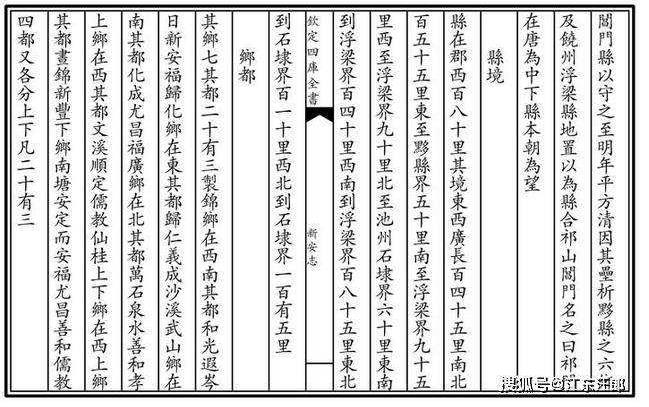 閶門縣以守之至明年平方清因其壘析黟縣之六
及饒州浮梁縣地置以為縣合祁山閶門名之曰祁
在唐為中下縣本朝為望
縣境
縣在郡西百八十里其境東西廣長百四十五里南北
百五十五里東至黟縣界五十里南至浮梁界九十五
里西至浮梁界九十里北至池州石埭界六十里東南
到浮梁界百四十里西南到浮梁界百八十五里東北
欽定四庫全書
新安志
到石埭界百一十里西北到石埭界一百有五里
鄉都
其鄉七其都二十有三製錦鄉在西南其都和光遐岑
日新安福歸化鄉在東其都歸仁義成沙溪武山鄉在
南其都化成尤昌福廣鄉在北其都萬石泉水善和孝
上鄉在西其都文溪順定儒教仙桂上下鄉在西上鄉
其都晝錦新豐下鄉南塘安定而安福尤昌善和儒教
四都又各分上下凡二十有三
搜狐号@江东汪郎